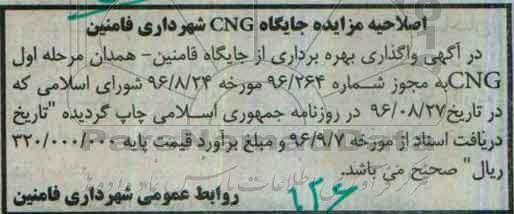 اصلاحیه مزایده جایگاه CNG شهرداری فامنین
در آگهی واگذاری بهره برداری از جایگاه فامنین - همدان مرحله اول
CNG به مجوز شماره ۹۶/۲۶۴ مورخه ۹۶/۸/۲۴ شورای اسلامی که
در تاریخ ۹۶/۰۸/۲۷ در روزنامه جمهوری اسلامی چاپ گردیده "تاریخ
دریافت اسناد از مورخه ۹۶/۹/۷ و مبلغ برآورد قیمت پایه ۳۲۰/۰۰۰/۰۰۰
ریال" صحیح می باشد.
۱۳۶
روابط عمومی شهرداری فامنین